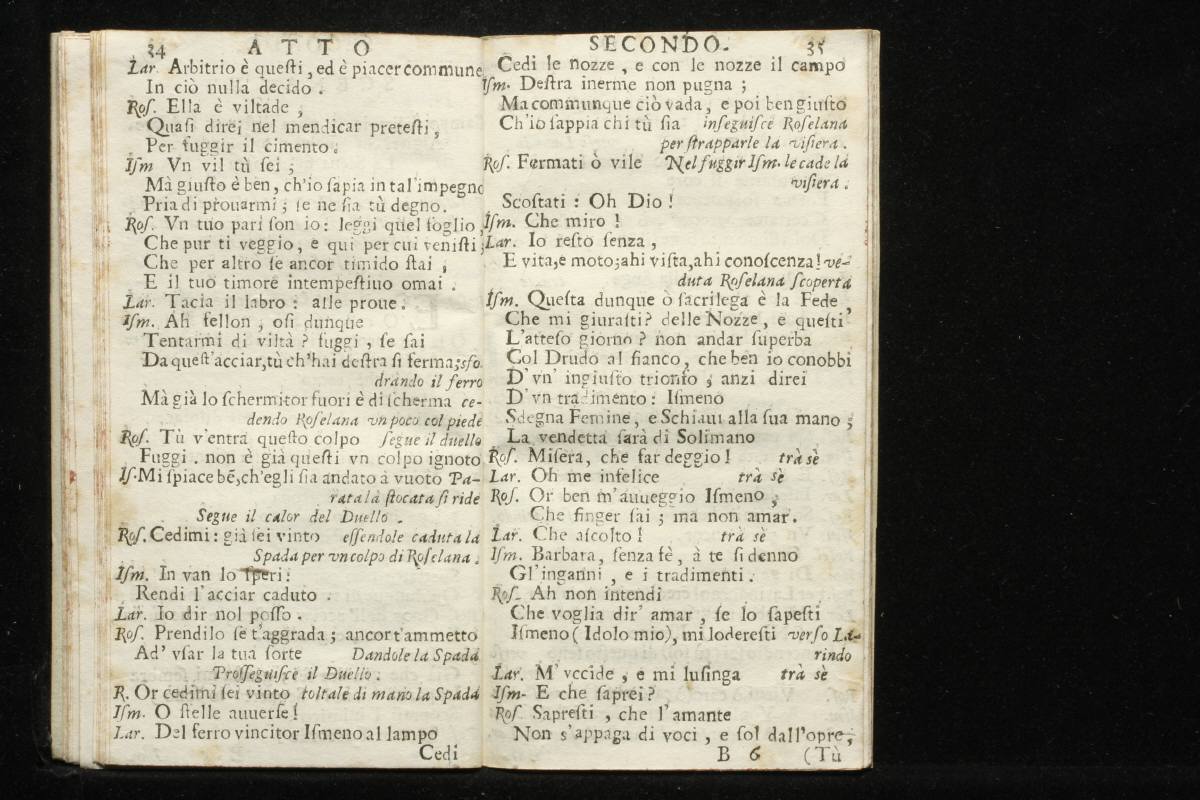 34 ATTO
Lar. Arbitrio è questi, ed è piacer commune
In ciò nulla decido.
Ros. Ella è viltade,
Quasi direi nel mendicar pretesti,
Per fuggir il cimento.
Ism Vn vil tù sei;
Mà giusto è ben, ch'io sapia in tal'impegno
Pria di prouarmi; se ne sia tù degno.
Ros. Vn tuo pari son io: leggi quel foglio,
Che pur ti veggio, e qui per cui venisti;
Che per altro se ancor timido stai,
E il tuo timore intempestiuo omai.
Lar. Tacia il labro: alle proue.
Ism. Ah fellon, osi dunque
Tentarmi di viltà? fuggi, se sai
Da quest'acciar, tù ch'hai destra si ferma; sfo
drando il ferro
Mà già lo schermitor fuori è di scherma ce-
dendo Roselana vn poco col piede
Ros. Tù v'entra questo colpo segue il duello
Fuggi. non è già questi vn colpo ignoto
Is. Mi spiace bẽ, ch'egli sia andato à vuoto Pa-
rata la stocata si ride
Segue il calor del Duello.
Ros. Cedimi: già sei vinto essendole caduta la
Spada per vn colpo di Roselana.
Ism. In van lo speri:
Rendi l'acciar caduto.
Lar. Io dir nol posso.
Ros. Prendilo se t'aggrada; ancor t'ammetto
Ad' vsar la tua sorte Dandole la Spada
Prosseguisce il Duello.
R. Or cedimi sei vinto toltale di mano la Spada
Ism. O stelle auuerse!
Lar. Del ferro vincitor Ismeno al lampo
Cedi
SECONDO. 35
Cedi le nozze, e con le nozze il campo
Ism. Destra inerme non pugna;
Ma communque ciò vada, e poi ben giusto
Ch'io sappia chi tù sia inseguisce Roselana
per strapparle la visiera.
Ros. Fermati ò vile Nel fuggir Ism. le cade la
visiera.
Scostati: Oh Dio!
Ism. Che miro!
Lar. Io resto senza,
E vita, e moto; ahi vista, ahi conoscenza! ve-
duta Roselana scoperta
Ism. Questa dunque ò sacrilega è la Fede
Che mi giurasti? delle Nozze, e questi
L'atteso giorno? non andar superba
Col Drudo al fianco, che ben io conobbi
D' vn' ingiusto trionfo; anzi direi
D' vn tradimento: Ismeno
Sdegna Femine, e Schiaui alla sua mano;
La vendetta sarà di Solimano
Ros. Misera, che far deggio! trà sè
Lar. Oh me infelice trà sè
Ros. Or ben m'auueggio Ismeno,
Che finger sai; ma non amar.
Lar. Che ascolto! trà sè
Ism. Barbara, senza fè, à te si denno
Gl'inganni, e i tradimenti.
Ros. Ah non intendi
Che voglia dir' amar, se lo sapesti
Ismeno (Idolo mio), mi loderesti verso La-
rindo
Lar. M' vccide, e mi lusinga trà sè
Ism- E che saprei?
Ros Sapresti, che l'amante
Non s'appaga di voci, e sol dall'opre;
B 6 (Tù